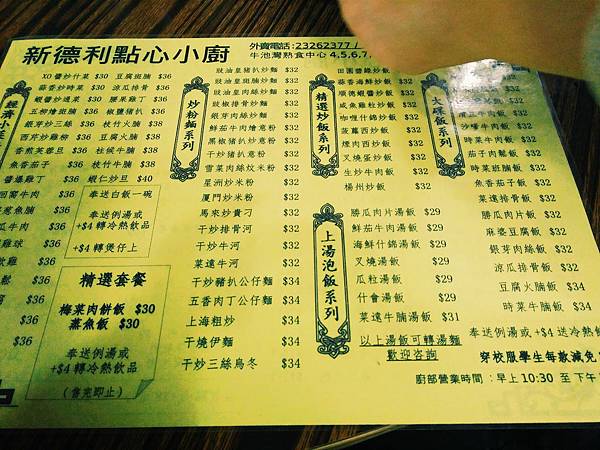 新德利點心小廚
外賣電話:23262377 /
牛池灣熟食中心 4,5,6,7,
XO醬炒什菜 $30 豆腐斑腩 $36
蒜香炒時菜 $30 涼瓜排骨 $36
蝦醬炒通菜 $30 腰果雞丁 $36
五柳燴斑腩 $36 椒鹽豬扒 $36
銀芽炒三絲 $36 枝竹火腩 $38
西芹炒雞柳 $36 豆腐火腩 $38
香煎芙蓉旦 $36 柱候牛腩 $38
魚香茄子 $36 枝竹牛腩 $38
醬爆雞丁 $36 蝦仁炒旦 $40
回窩牛肉 $36
$36
瓜牛肉 $36
$36
$36
$36
$36
$36
$36
奉送白飯一碗
奉送例湯或
+$4 轉煲仔上
精選套餐
梅菜肉餅飯 $30
蒸魚飯 $30
奉送例湯或
+$4 轉冷熱飲品
(售完即止)
炒粉麵系列
豉油皇豬扒炒麵 $32
豉油皇牛肉炒麵 $32
豉油皇肉絲炒麵 $32
豉椒排骨炒麵 $32
銀芽肉絲炒麵 $32
鮮茄牛肉燴意粉 $32
黑椒豬扒炒意粉 $32
干炒豬扒意粉 $32
雪菜肉絲炆米粉 $32
星洲炒米粉 $32
廈門炒米粉 $32
馬來炒貴刁 $32
干炒排骨河 $32
干炒牛河 $32
菜遠牛河 $32
干炒豬扒公仔麵 $34
五香肉丁公仔麵 $34
上海粗炒 $34
干燒伊麵 $34
干炒三絲烏冬 $34
精選炒飯系列
田園醬粒炒飯 $32
蒜香海鮮炒飯 $32
順德蝦醬炒飯 $32
咸魚雞粒炒飯 $32
咖喱什錦炒飯 $32
菠蘿西炒飯 $32
煙肉西炒飯 $32
叉燒蛋炒飯 $32
生炒牛肉飯 $32
楊州炒飯 $32
上湯泡飯系列
勝瓜肉片湯飯 $29
鮮茄牛肉湯飯 $29
海鮮什錦湯飯 $29
叉燒湯飯 $29
瓜粒湯飯 $29
什會湯飯 $29
菜遠牛腩湯飯 $31
以上湯飯可轉湯麵
歡迎咨詢
沙嗲牛肉飯 $32
時菜牛肉飯 $32
茄子肉鬆飯 $32
時菜斑腩飯 $32
魚香茄子飯 $32
菜遠排骨飯 $32
勝瓜肉片飯 $32
麻婆豆腐飯 $32
銀芽肉絲飯 $32
涼瓜排骨飯 $32
豆腐火腩飯 $34
時菜牛腩飯 $34
奉送例湯或 +$4 送冷熱飲
穿校服學生每款減免
廚部營業時間 :早上 10:30 至 下午